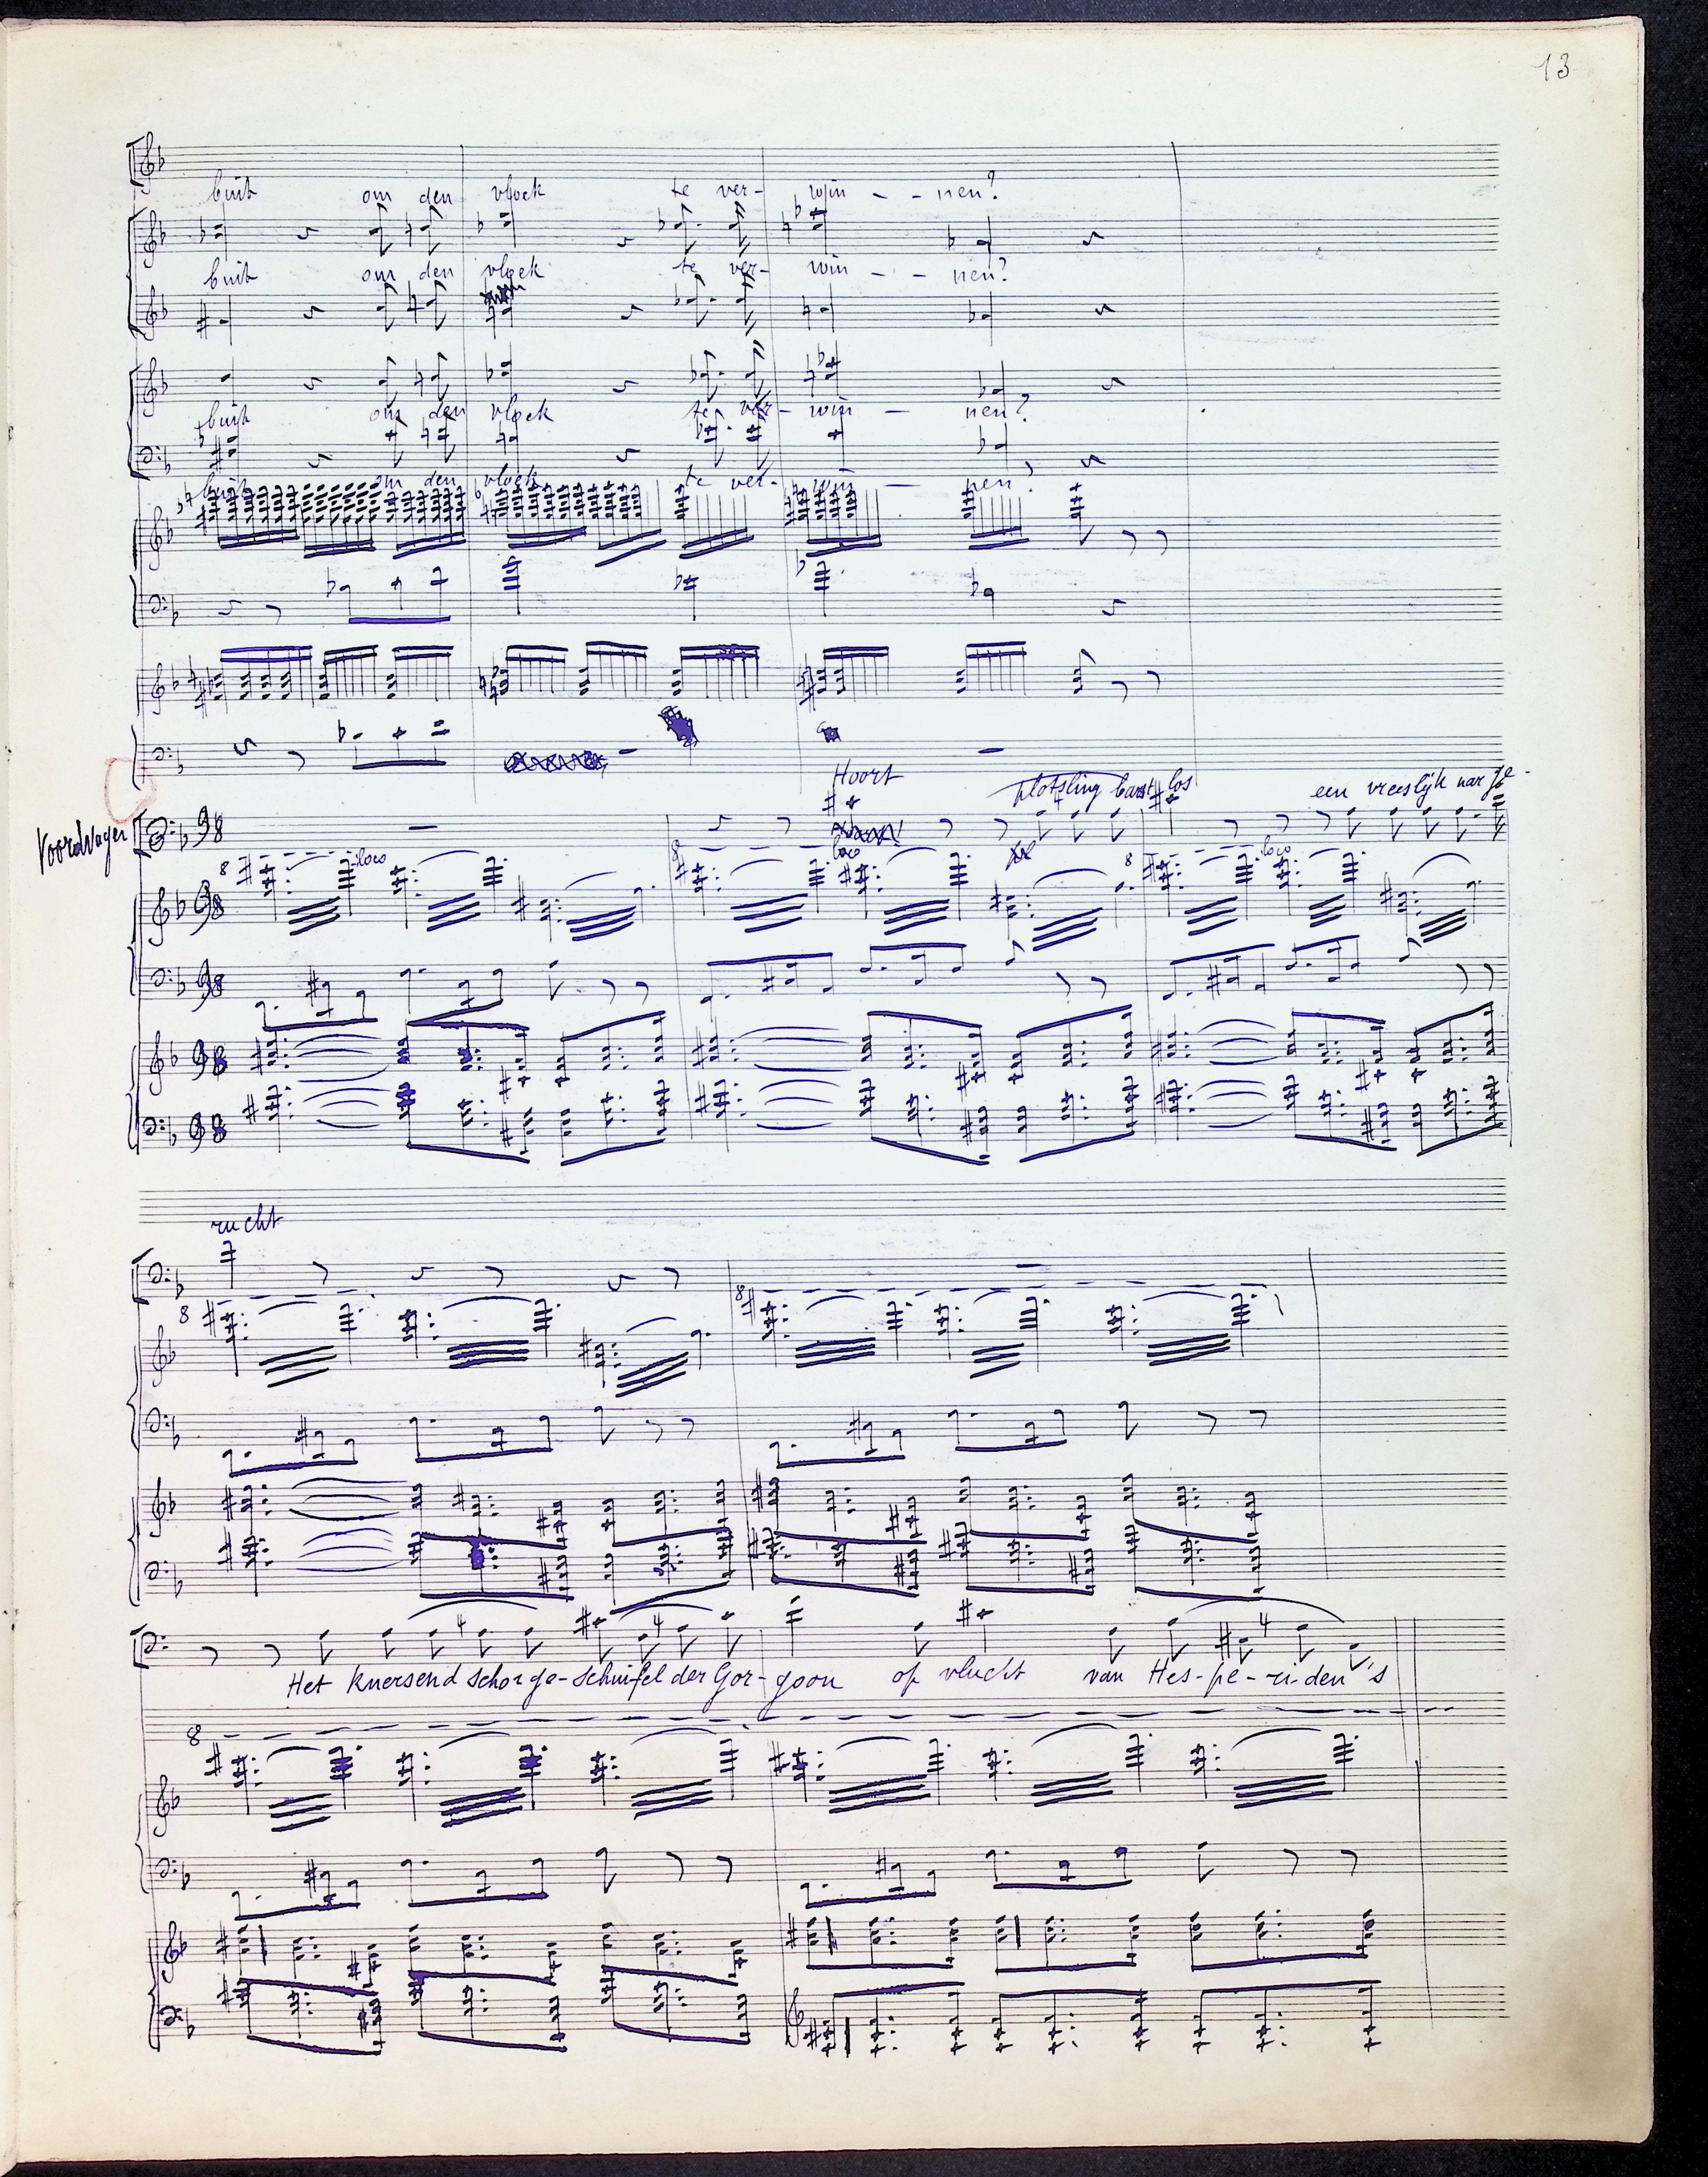 13
buit om den vloek te ver- win - - nen?
buit om den vloek te ver- win - - nen?
buit om den vloek te ver- win - nen?
buit om den vloek te ver- win - nen?
Hoort plotsling barst los een vreeslijk naar ge-
Voordrager
98
8 loco 8 loco 8 loco
98
98
98
98
rucht
8 8
4 4 4
Het knersend schor ge-schuifel der Gor-goon of vlucht van Hes-pe-ri-den's
8